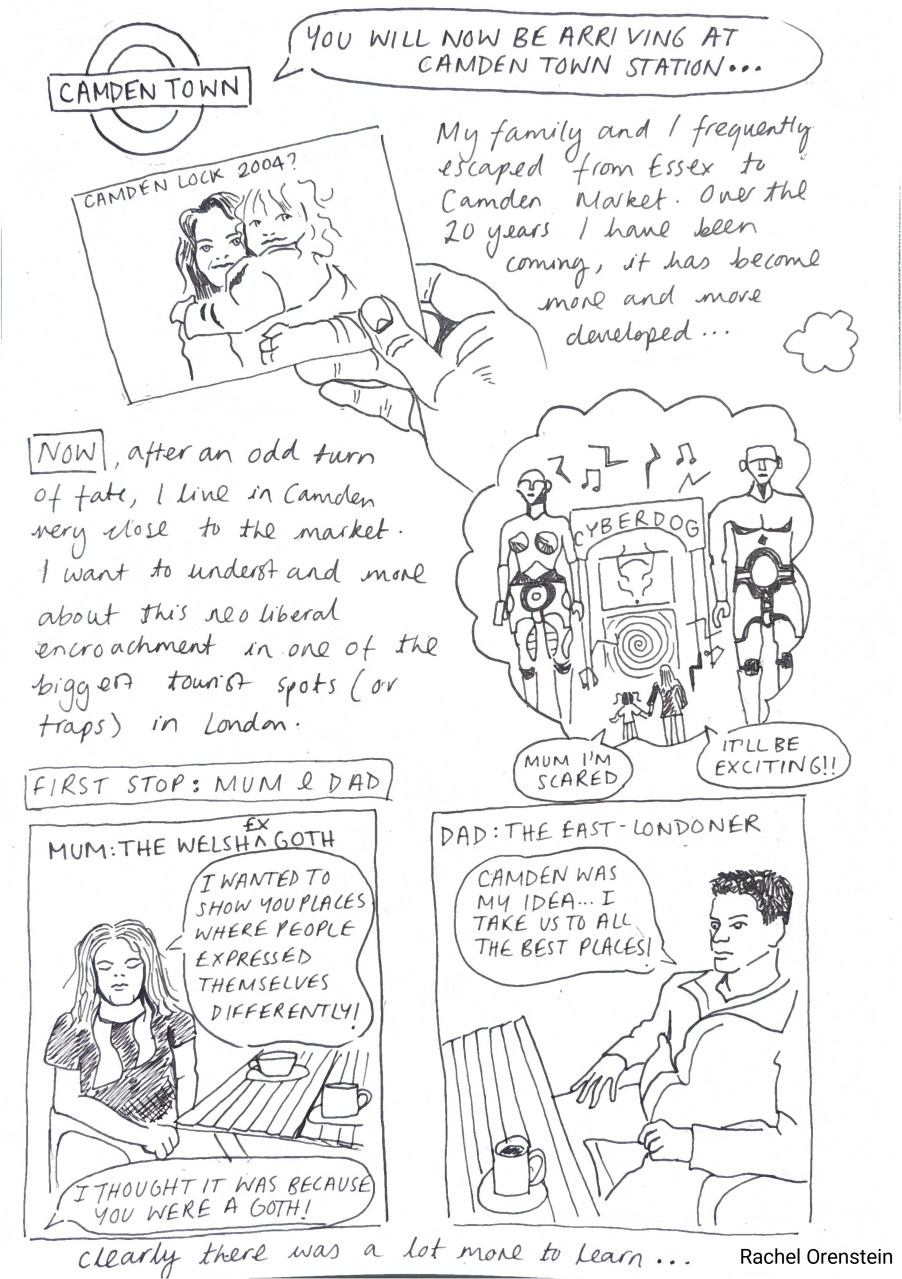 YOU WILL NOW BE ARRIVING AT
CAMDEN TOWN STATION...
CAMDEN TOWN
CAMDEN LOCK 2004?
My family and I frequently
escaped from Essex to
Camden Market. Over the
20 years I have been
coming, it has become
more and more
developed...
NOW, after an odd turn
of fate, I live in Camden
very close to the market.
I want to understand more
about this neoliberal
encroachment in one of the
biggest tourist spots (or
traps) in London.
CYBERDOG
MUM I'M
SCARED
IT'LL BE
EXCITING!!
FIRST STOP: MUM & DAD
MUM: THE WELSH EX GOTH
I WANTED TO
SHOW YOU PLACES
WHERE PEOPLE
EXPRESSED
THEMSELVES
DIFFERENTLY!
I THOUGHT IT WAS BECAUSE
YOU WERE A GOTH!
DAD: THE EAST-LONDONER
CAMDEN WAS
MY IDEA... I
TAKE US TO ALL
THE BEST PLACES!
clearly there was a lot more to learn...
Rachel Orenstein